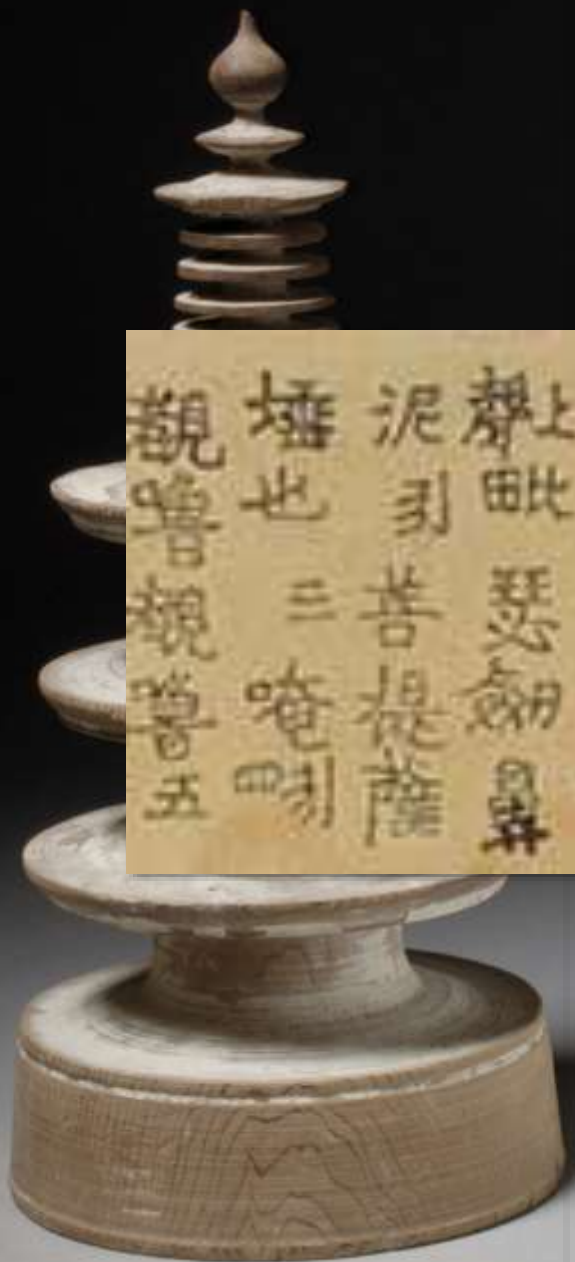 毗瑟劒鼻
泥引菩提薩
埵也三唵四引
覩嚕覩嚕五